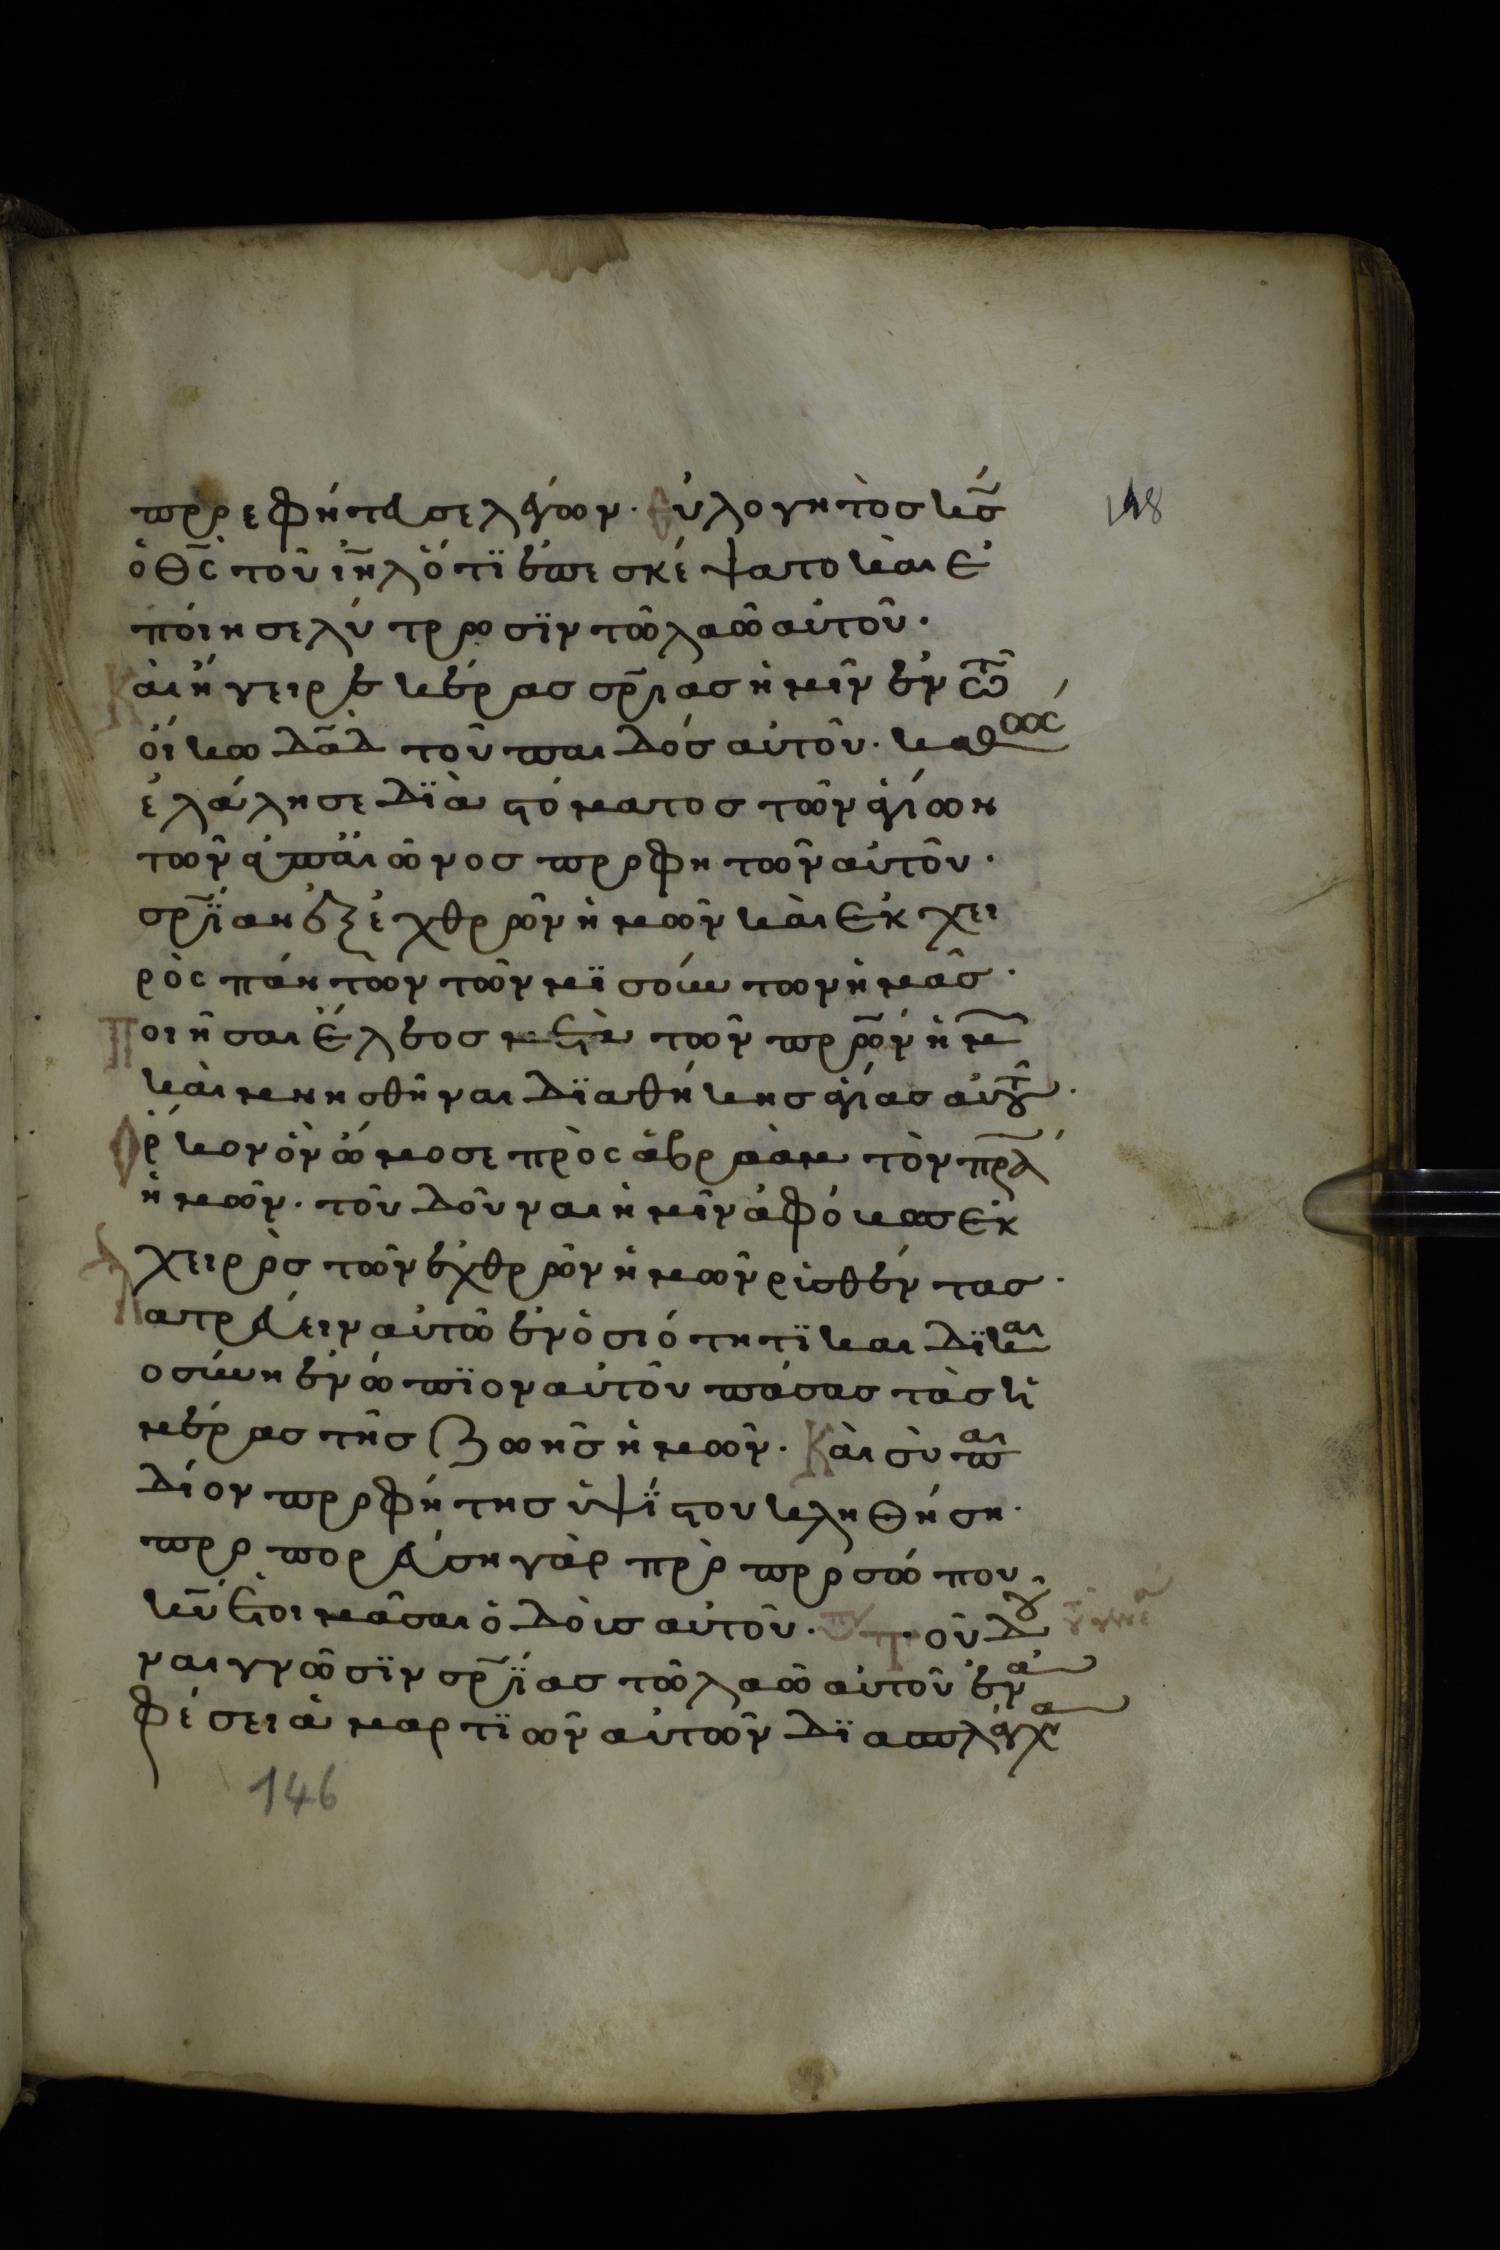 προεφήτευσε λέγων· Εὐλογητὸς κ̅ς̅
ὁ θ̅ς̅ τοῦ ι̅η̅λ̅ ὅτϊ ἐπεσκέψατο καὶ ἐ
ποίησε λύτρωσϊν τῶ λαῶ αὐτοῦ·
Καὶ ἤγειρε κέρας σ̅ρ̅ιας ἡμῖν ἐν τῶ
οἴκω δ̅α̅δ̅ τοῦ παιδός αὐτοῦ· καθώς
ἐλάλησε δϊὰ στόματος τῶν ἁγίων
τῶν ἀπ' αἰῶνος προφητῶν αὐτοῦ·
σ̅ρ̅ϊαν ἐξ ἐχθρῶν ἡμῶν καὶ ἐκ χει
ρὸς πάντων τῶν μϊσούντων ἡμᾶς·
Ποιῆσαι ἔλεος μετὰ τῶν π̅ρ̅ων ἡμ
καὶ μνησθῆναι δϊαθήκης ἁγίας αὐτοῦ·
Ὅρκον ὃν ὤμοσε πρὸς ἀβραὰμ τὸν π̅ρ̅α
ἡμῶν· τοῦ δοῦναι ἡμῖν ἀφόβως ἐκ
χειρὸς τῶν ἐχθρῶν ἡμῶν ῥισθέντας·
λατρεύειν αὐτῶ ἐν ὁσιότητϊ και δϊκαι
οσύνη ἐνώπϊον αὐτοῦ πάσας τὰς ἡ
μέρας τῆς ζωῆς ἡμῶν· Καὶ σὺ παι
δίον προφήτης ὑψίστου κληθήση·
προπορεύση γὰρ πρὸ προσώπου
κ̅υ̅ ἑτοιμᾶσαι ὁδοὺς αὐτοῦ· Τοῦ δοῦ
ναι γνῶσϊν σ̅ρ̅ϊας τῶ λαῶ αὐτοῦ ἐν ἀ
φέσει ἁμαρτϊῶν αὐτῶν δϊα σπλάγχνα
148
146